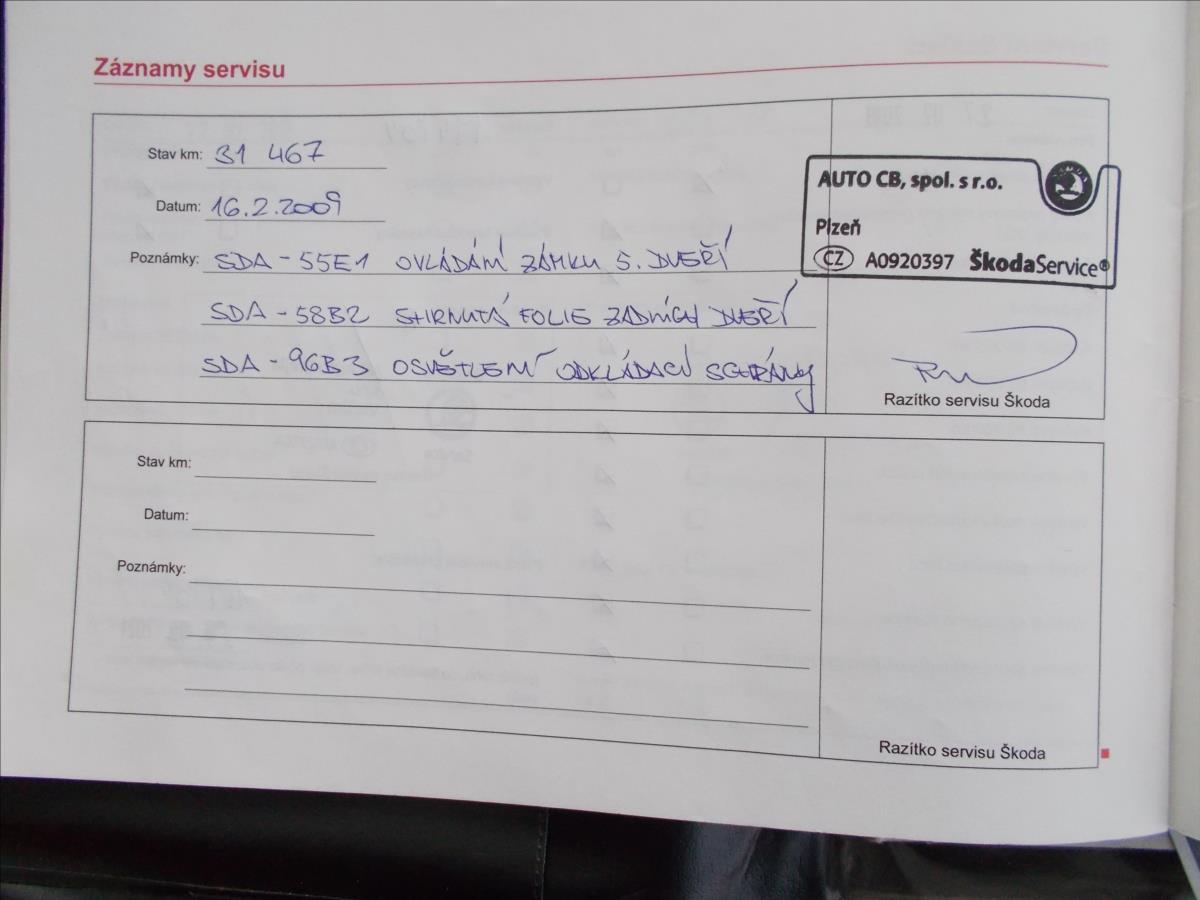 Záznamy servisu
Stav km: 31 467
Datum: 16.2.2009
Poznámky: SDA - 55E1 OVLÁDÁNÍ ZÁMKU 5. DVEŘÍ
SDA - 58B2 SHRNUTÁ FOLIE ZADNÍCH DVEŘÍ
SDA - 96B3 OSVĚTLENÍ ODKLÁDACÍ SCHRÁNKY
AUTO CB, spol. s r.o.
Plzeň
CZ A0920397 ŠkodaService®
Razítko servisu Škoda
Stav km:
Datum:
Poznámky:
Razítko servisu Škoda